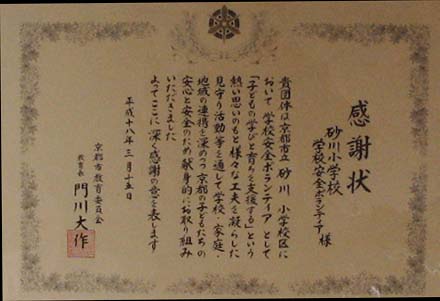 感謝状
砂川小学校
学校安全ボランティア 様
貴団体は京都市立 砂川 小学校区に
おいて 学校安全ボランティアとして
「子どもの学びと育ちを支援する」という
熱い思いのもと様々な工夫を凝らした
見守り活動等を通して学校・家庭・
地域の連携を深めつつ京都の子どもたちの
安心と安全のため献身的にお取り組み
いただきました
よってここに深く感謝の意を表します
平成十八年三月十五日
京都市教育委員会
教育長 門川大作